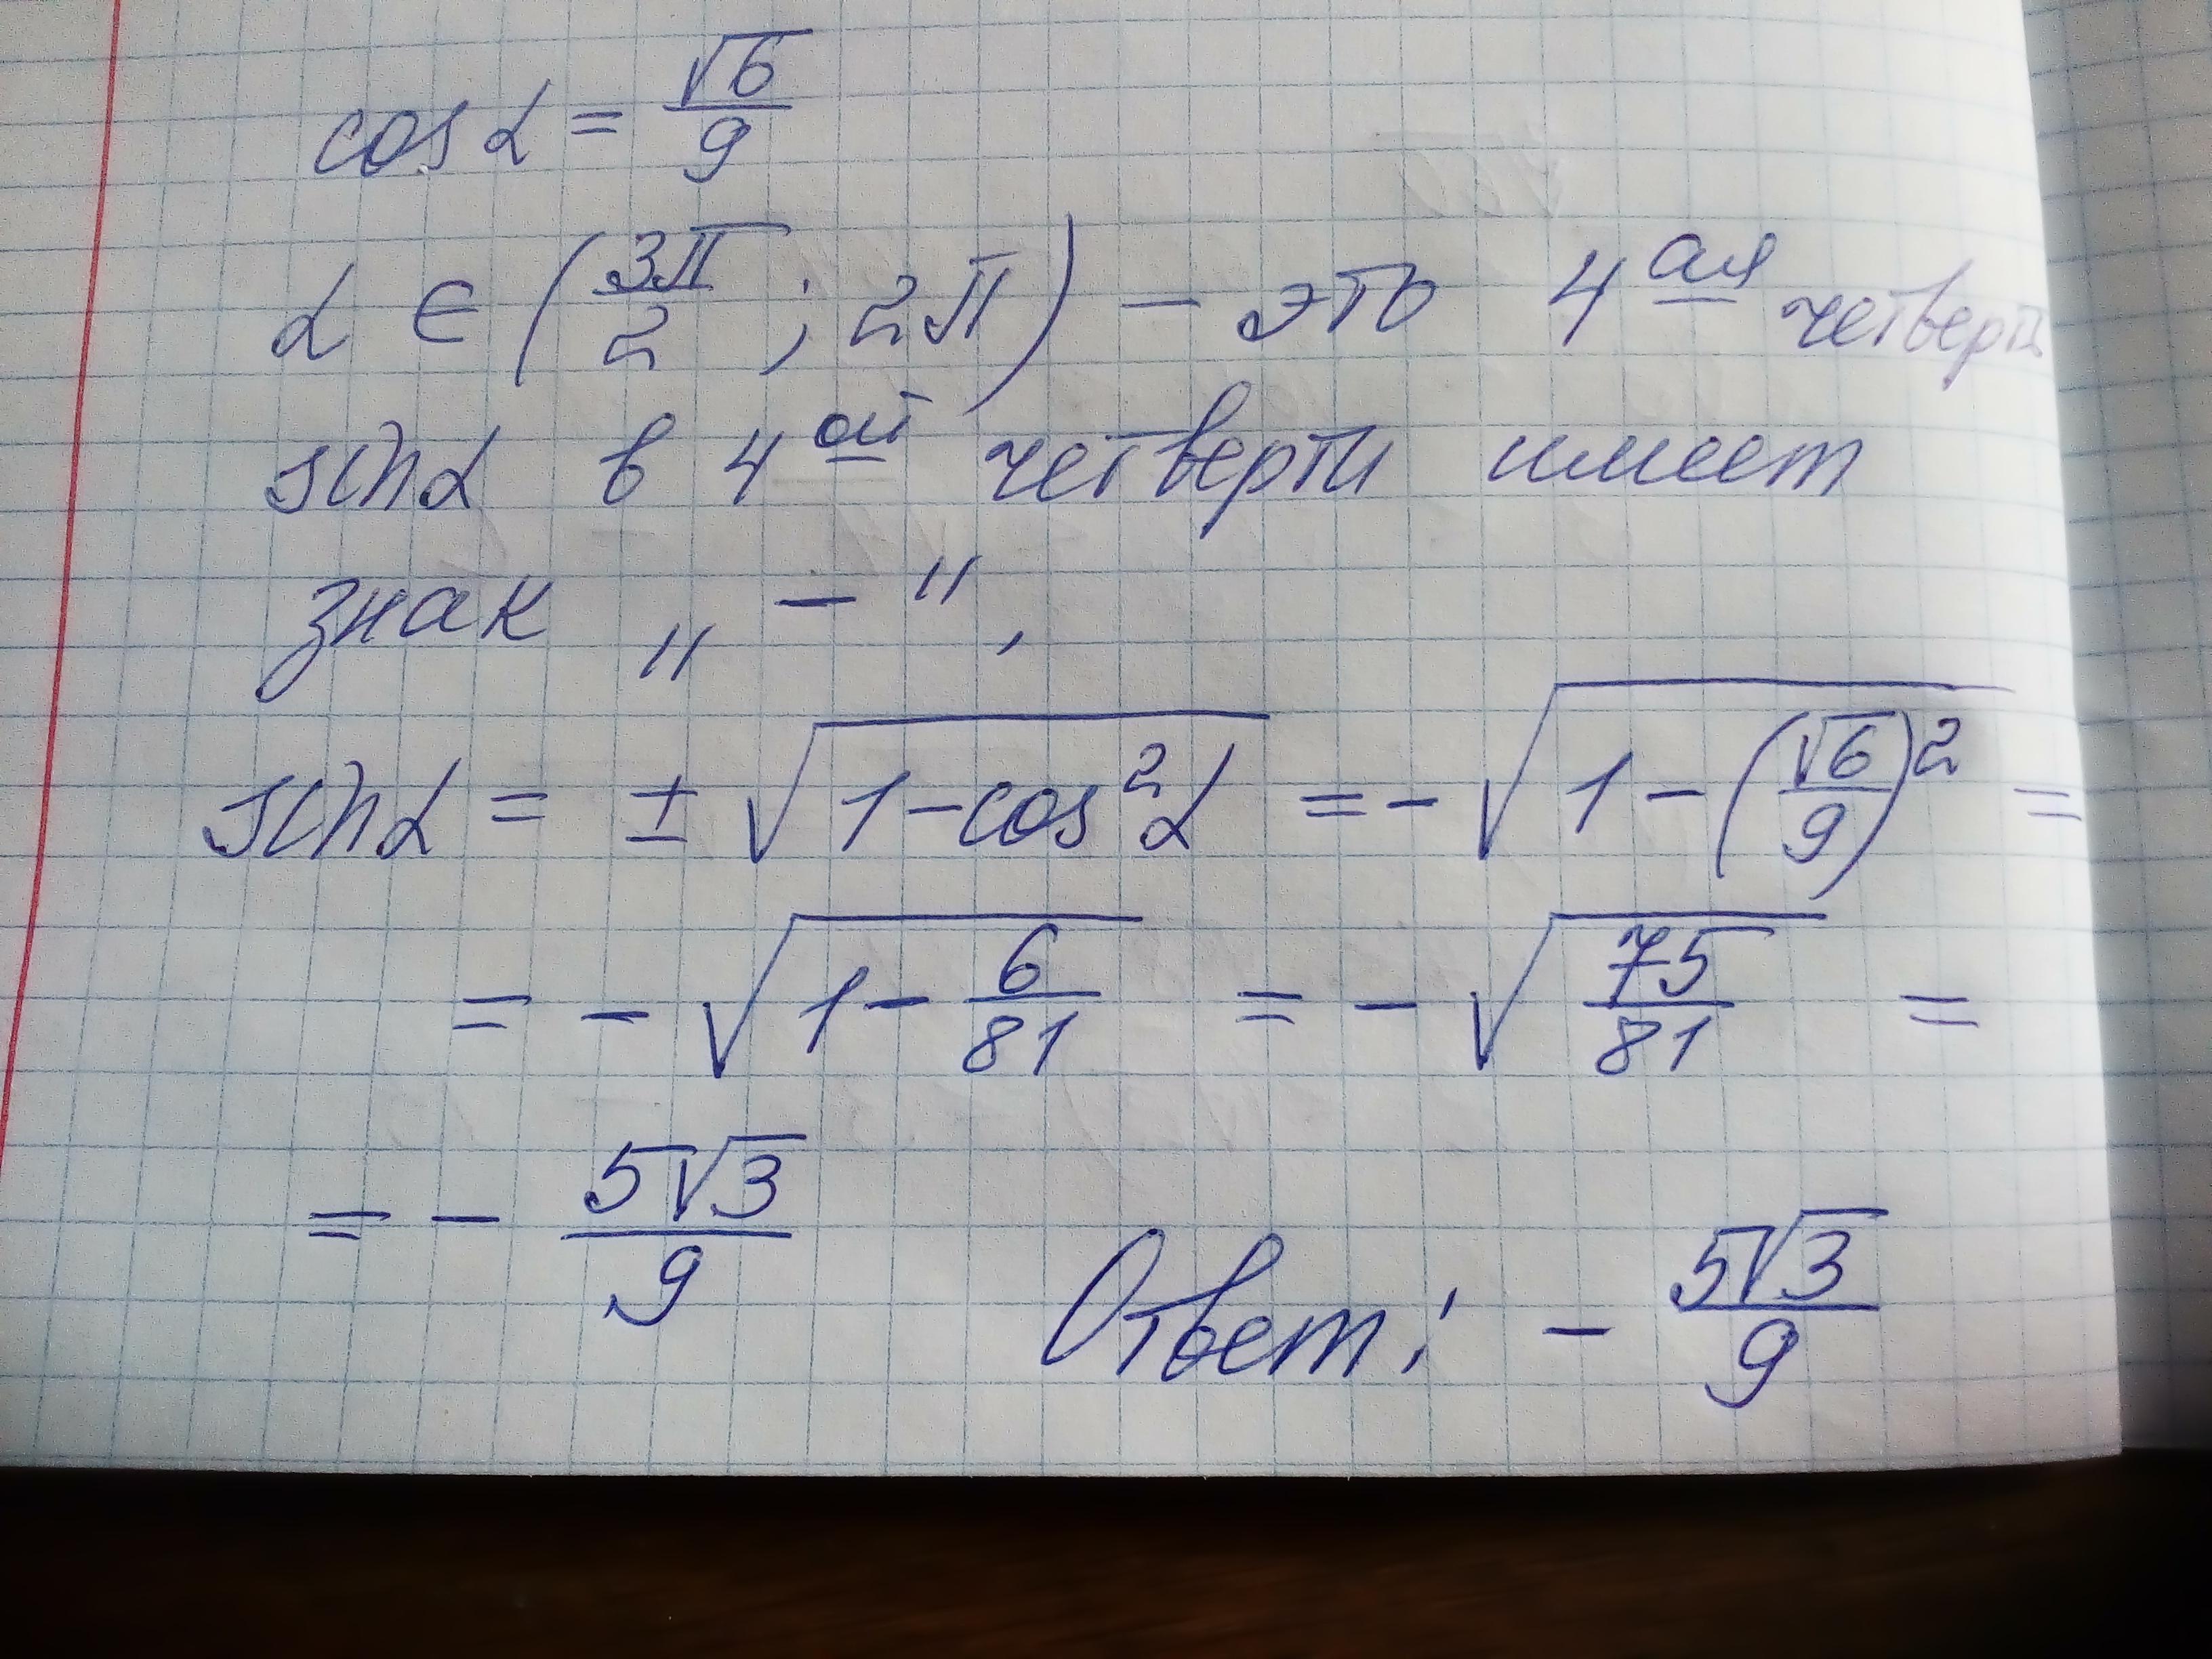 cos α = √6/9
α ∈ (3π/2 ; 2π) – это 4ая четверть
sin α в 4ой четверти имеет
знак „ – “ ,
sin α = ± √(1 – cos²α) = – √(1 – (√6/9)²) =
= – √(1 – 6/81) = – √(75/81) =
= – 5√3/9
Ответ: – 5√3/9